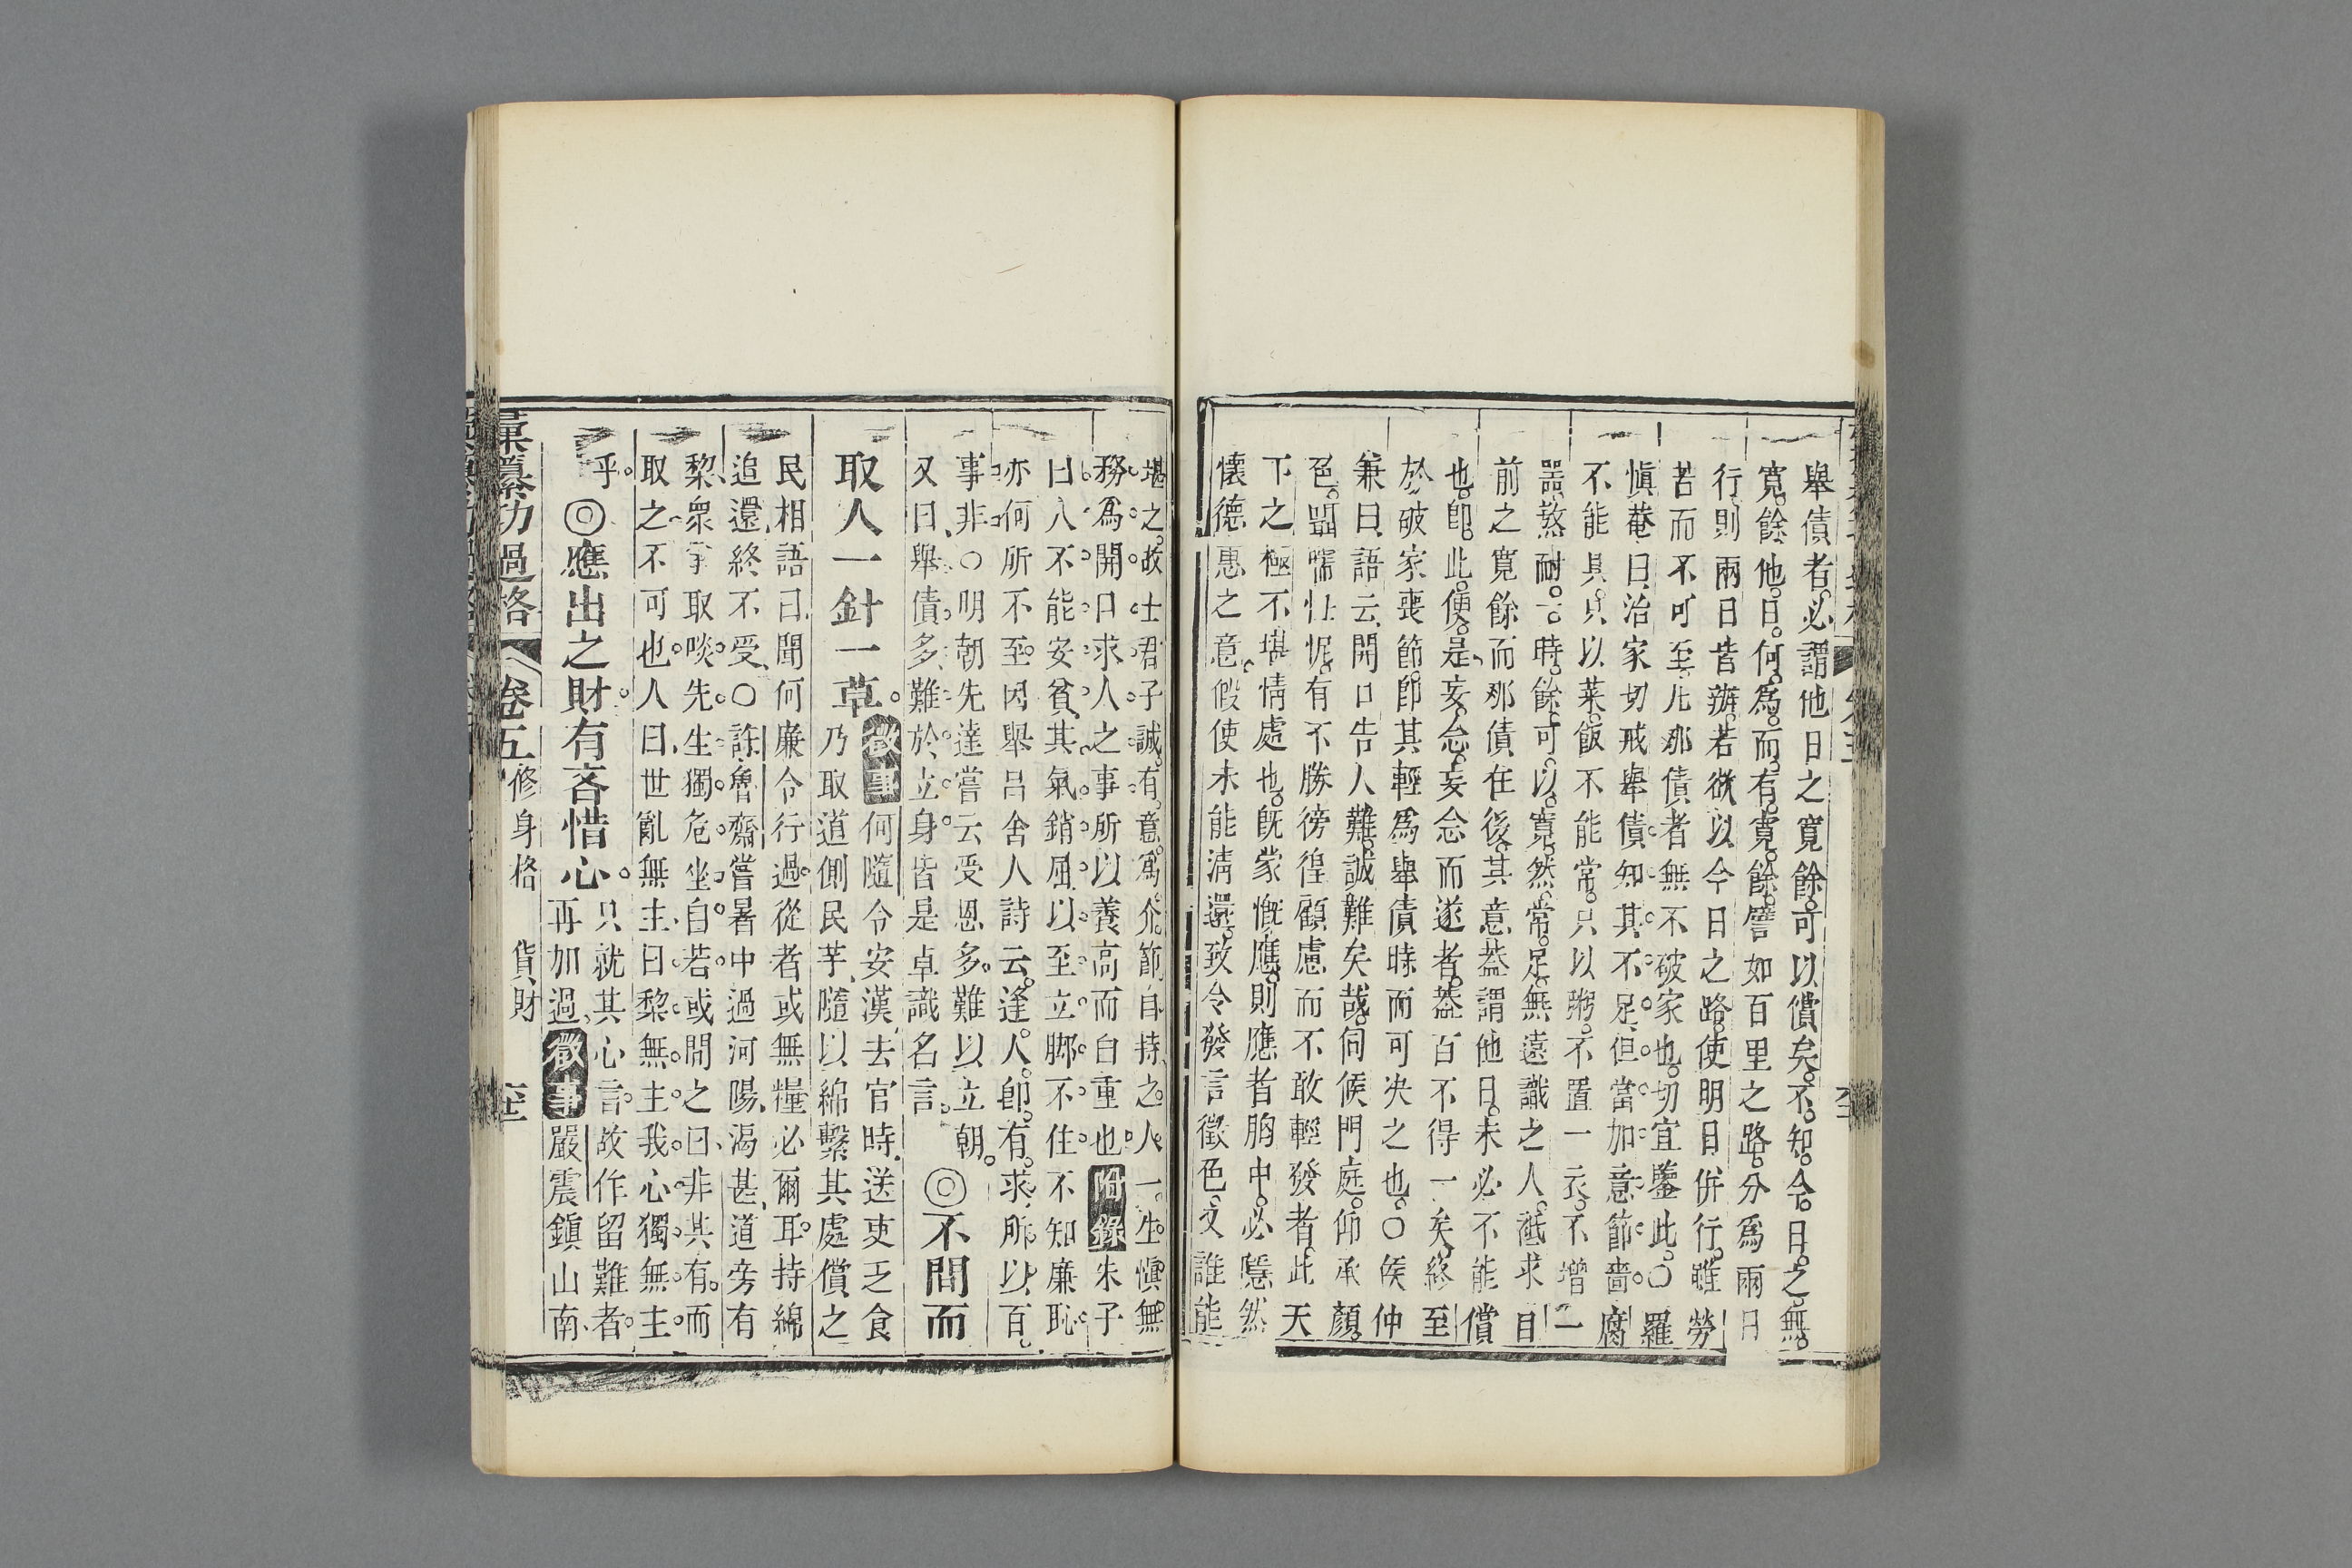 舉債者必謂他日之寬餘可以償矣不知今日之無
寬餘他日何爲而有寬餘譬如百里之路分爲兩日
行則兩日皆辦若欲以今日之路使明日併行雖勞
苦而不可至凡那債者無不破家也切宜鑒此○羅
慎菴曰治家切戒舉債知其不足但當加意節嗇腐
不能具只以菜飯不能常只以粥不置一衣不增一
器熬耐一時餘可以寬然常足無遠識之人秪求目
前之寬餘而那債在後其意葢謂他日未必不能償
也卽此便是妄念妄念而遂者葢百不得一矣終至
於破家喪節卽其輕爲舉債時而可决之也○矦仲
兼曰語云開口告人難誠難矣哉伺候門庭仰承顏
色囁嚅忸怩有不勝徬徨顧慮而不敢輕發者此天
下之極不堪情處也旣蒙慨應則應者胸中必隱然
懷德惠之意假使未能淸還致令發言徵色文誰能
堪之故士君子誠有意爲介節自持之人一生慎無
務爲開口求人之事所以養高而自重也附錄朱子
曰人不能安貧其氣銷屈以至立脚不住不知廉恥
亦何所不至因舉呂舍人詩云逢人卽有求所以百
事非○明朝先達嘗云受恩多難以立朝
又曰舉債多難於立身皆是卓識名言◎不問而
取人一針一草徵事何隨令安漢去官時送吏乏食
乃取道側民芋隨以綿繫其處償之
民相語曰聞何廉令行過從者或無糧必爾耳持綿
追還終不受○許魯齋嘗暑中過河陽渴甚道旁有
棃衆爭取啖先生獨危坐自若或問之曰非其有而
取之不可也人曰世亂無主曰棃無主我心獨無主
乎◎應出之財有吝惜心只就其心言故作留難者
再加過徵事嚴震鎭山南
彙纂功過格 卷五 修身格 貨財